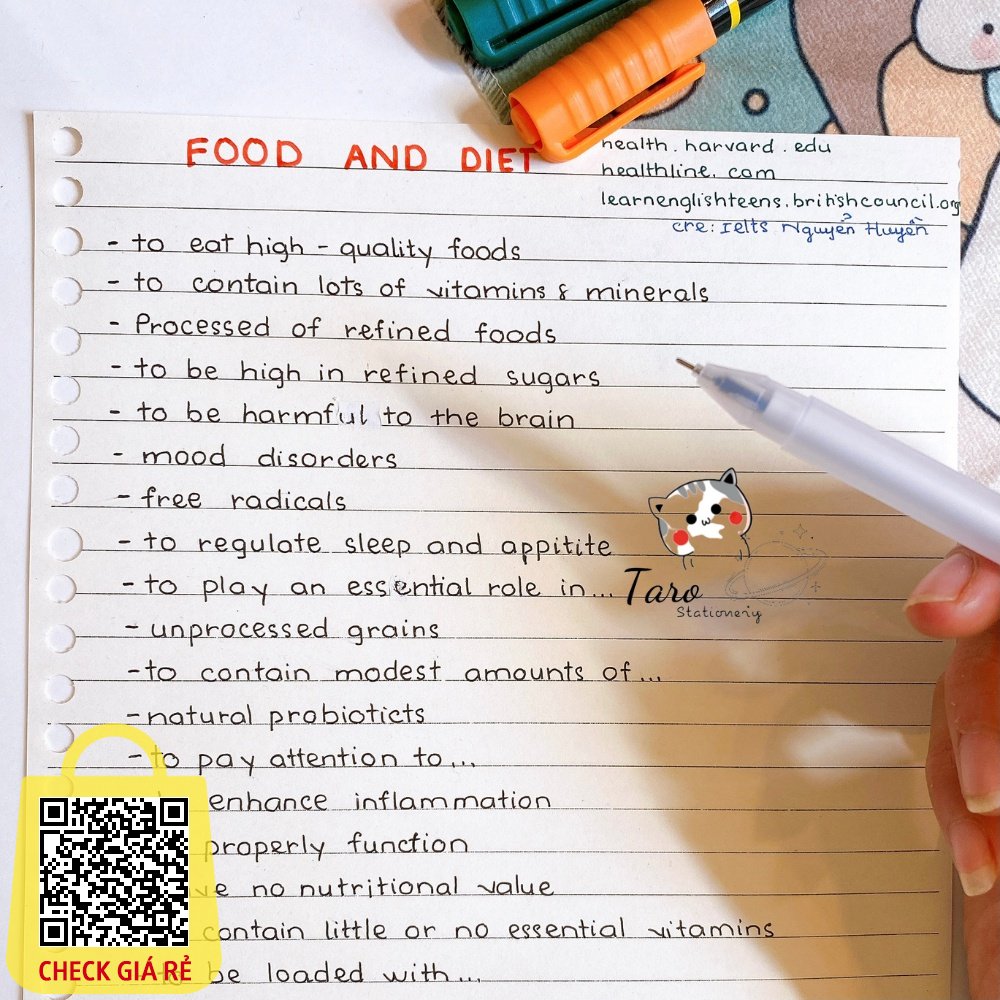 FOOD AND DIET
health.harvard.edu
healthline.com
learnenglishteens.britishcouncil.org
cre: Ielts Nguyễn Huyền
- to eat high - quality foods
- to contain lots of vitamins & minerals
- Processed of refined foods
- to be high in refined sugars
- to be harmful to the brain
- mood disorders
- free radicals
- to regulate sleep and appitite
- to play an essential role in...
- unprocessed grains
- to contain modest amounts of...
- natural probioticts
- to pay attention to...
enhance inflammation
properly function
no nutritional value
contain little or no essential vitamins
to be loaded with...
Taro
Stationery
CHECK GIÁ RẺ